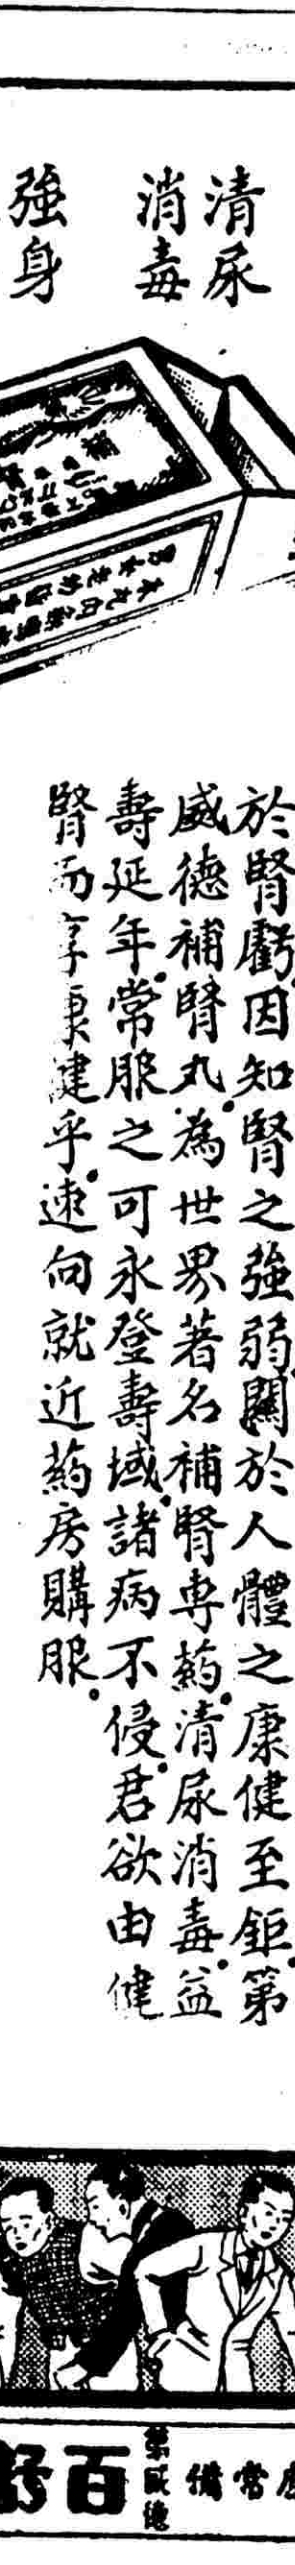 清尿
消毒
強身
於腎虧因知腎之強弱關於人體之康健至鉅第
威德補腎丸為世界著名補腎專藥清尿消毒益
壽延年常服之可永登壽域諸病不侵君欲由健
腎而享康健乎速向就近藥房購服
常備
第威德
百